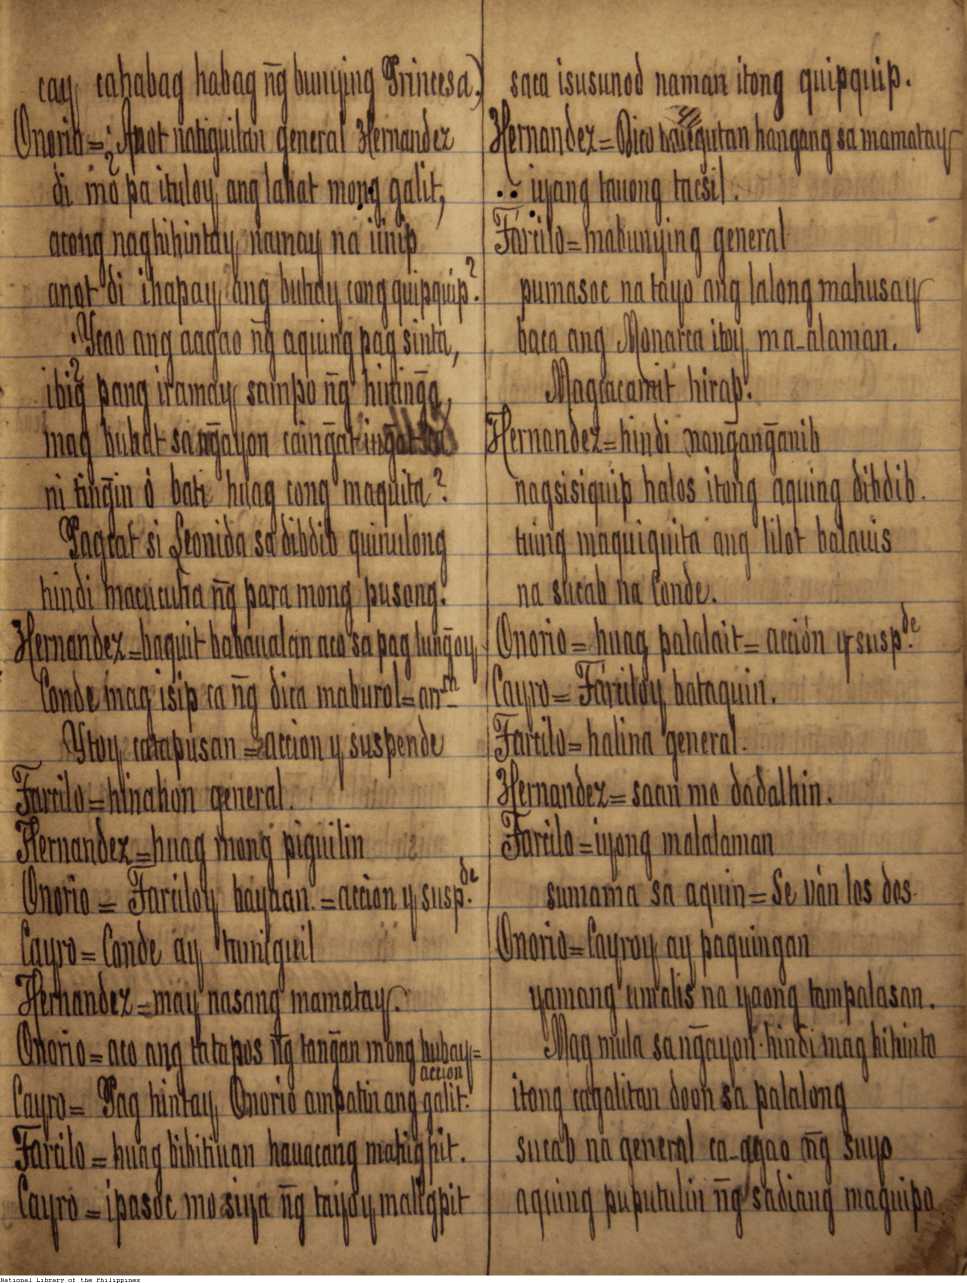 cay cahabag habag ñg bunying Princesa)
Onorio = ¿Anot natiguilan general Hernandez
di mo pa ituloy ang lahat mong galit,
acong naghihintay namay na iinip
anot di ihapay ang buhay cong quipquip?
Ycao ang aagao ñg aquing pag sinta,
ibig pang iramay sampo ñg hiningã,
mag buhat sa ngayon caingat ingat
ni tingin ó bati huag cong maquita?
Pagcat si Leonida sa dibdib quinulong
hindi macucuha ñg para mong pusong.
Hernandez = baquit babaualan aco sa pag lungoy
Conde mag isip ca ñg dica maburol = an
Ytoy catapusan = accion y suspende
Farcilo = hinahon general.
Hernandez = huag mong piguilin
Onorio = Farciloy bayaan. = accion y susp.de
Cayro = Conde ay tumiguil
Hernandez = may nasang mamatay.
Onorio = aco ang tatapos ñg tangan mong buhay = accion
Cayro = Pag hintay Onorio ampatin ang galit.
Farcilo = huag bibitiuan hauacang mahigpit.
Cayro = ipasoc mo siya ñg taiyoy maligpit
saca isusunod naman itong quipquip.
Hernandez = Dico hangang sa mamatay
iyang tauong tacsil.
Farcilo = mabunying general
pumasoc na tayo ang lalong mahusay
baca ang Monarca itoy ma-alaman.
Magcacamit hirap.
Hernandez = hindi nanganganib
nagsisiquip halos itong aquing dibdib.
tuing maquiquita ang lilot balauis
na sucab na Conde.
Onorio = huag palalait = acción y susp.de
Cayro = Farciloy bataquin.
Farcilo = halina general.
Hernandez = saan mo dadalhin.
Farcilo = iyong malalaman
sumama sa aquin = Se ván los dos.
Onorio = Cayroy ay paquingan
yamang umalis na yaong tampalasan.
Mag mula sa ngayon hindi mag hihinto
itong cagalitan doon sa palalong
sucab na general ca-agao ñg suyo
aquing puputulin ñg sadiang maguipo
National Library of the Philippines